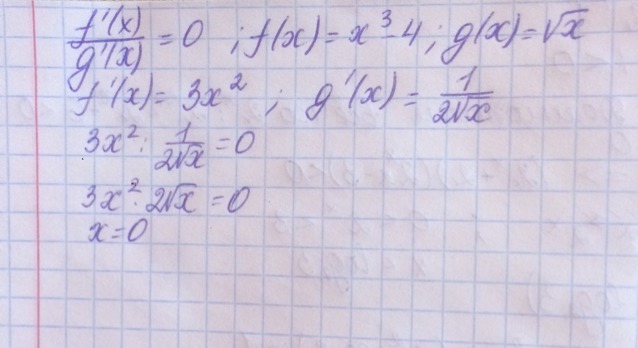 f'(x)/g'(x) = 0 ; f(x) = x³ - 4 ; g(x) = √x
f'(x) = 3x² ; g'(x) = 1/2√x
3x² : 1/2√x = 0
3x² · 2√x = 0
x = 0